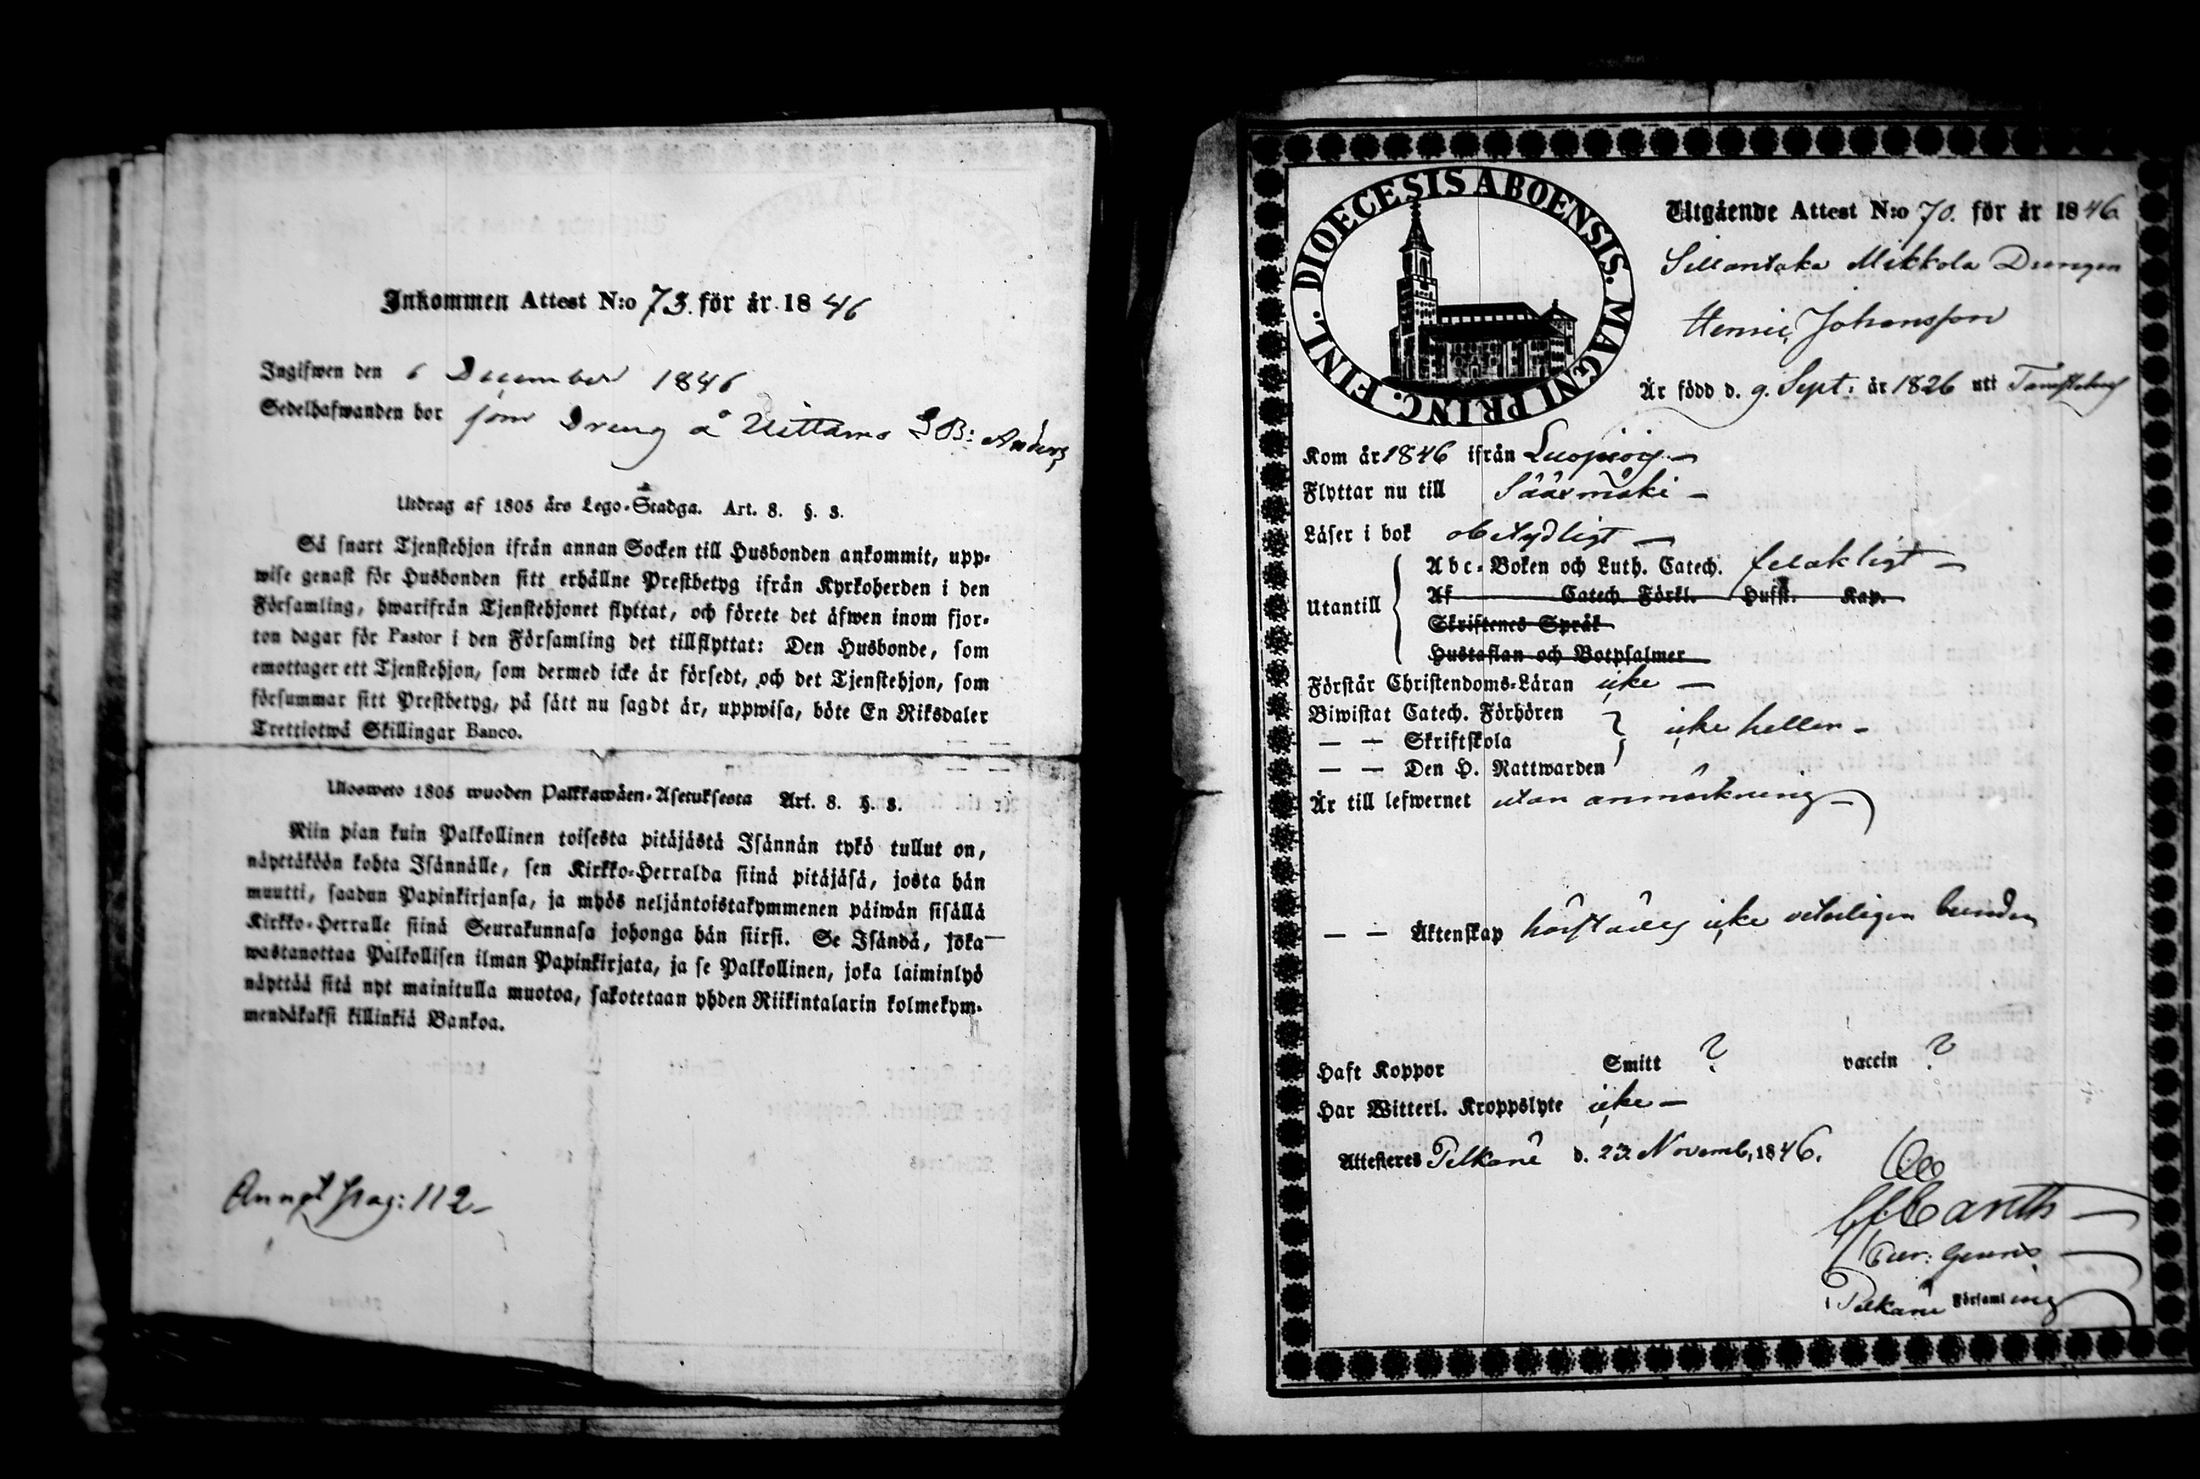 Inkommen Attest N:o 73. för år 1846
Ingifwen den 6 December 1846
Sedelhafwanden bor som Dreng å Uittamo SB: Anders
Utdrag af 1805 års Lego-Stadga. Art. 8. §. 3.
Så snart Tjenstehjon ifrån annan Socken till Husbonden ankommit, upp-
wise genast för Husbonden sitt erhållne Prestbetyg ifrån Kyrkoherden i den
Församling, hwarifrån Tjenstehjonet flyttat, och förete det äfwen inom fjor-
ton dagar för Pastor i den Församling det tillflyttat: Den Husbonde, som
emottager ett Tjenstehjon, som dermed icke är försedt, och det Tjenstehjon, som
försummar sitt Prestbetyg, på sätt nu sagdt är, uppwisa, böte En Riksdaler
Trettiotwå Skillingar Banco.
Ulosweto 1805 wuoden Palkkawäen-Asetuksesta Art. 8. §. 3.
Niin pian kuin Palkollinen toisesta pitäjästä Isännän tykö tullut on,
näyttäköön kohta Isännälle, sen Kirkko-Herralda siinä pitäjäsä, josta hän
muutti, saadun Papinkirjansa, ja myös neljäntoistakymmenen päiwän sisällä
Kirkko-Herralle siinä Seurakunnasa johonga hän siirsi. Se Isändä, joka
wastanottaa Palkollisen ilman Papinkirjata, ja se Palkollinen, joka laiminlyö
näyttää sitä nyt mainitulla muotoa, sakotetaan yhden Riikintalarin kolmekym-
mendäkaksi killinkiä Bankoa.
Annot pag: 112
DIOECESIS ABOENSIS. MAGNI PRINC. FINL.
Utgående Attest N:o 70. för år 1846
Sillantaka Mikkola Drengen
Henric Johansson
Är född d. 9. Sept: år 1826 uti Tavastehus
Kom år 1846 ifrån Luopiois
Flyttar nu till Sääxmäki
Läser i bok obetydligt
Utantill Abc-Boken och Luth. Catech. felaktigt
Af Catech. Förkl. Hufst. Kap.
Skriftenes Språk
Hustaflan och Botpsalmer
Förstår Christendoms-Läran icke
Biwistat Catech. Förhören
— — Skriftskola icke heller
— — Den H. Nattwarden
Är till lefwernet utan anmärkning
— — Äktenskap härstädes icke veterligen bunden
Haft Koppor Smitt ? vaccin ?
Har Witterl. Kroppslyte icke
Attesteres Pelkäne d. 23 Novemb. 1846.
Pelkäne Församling